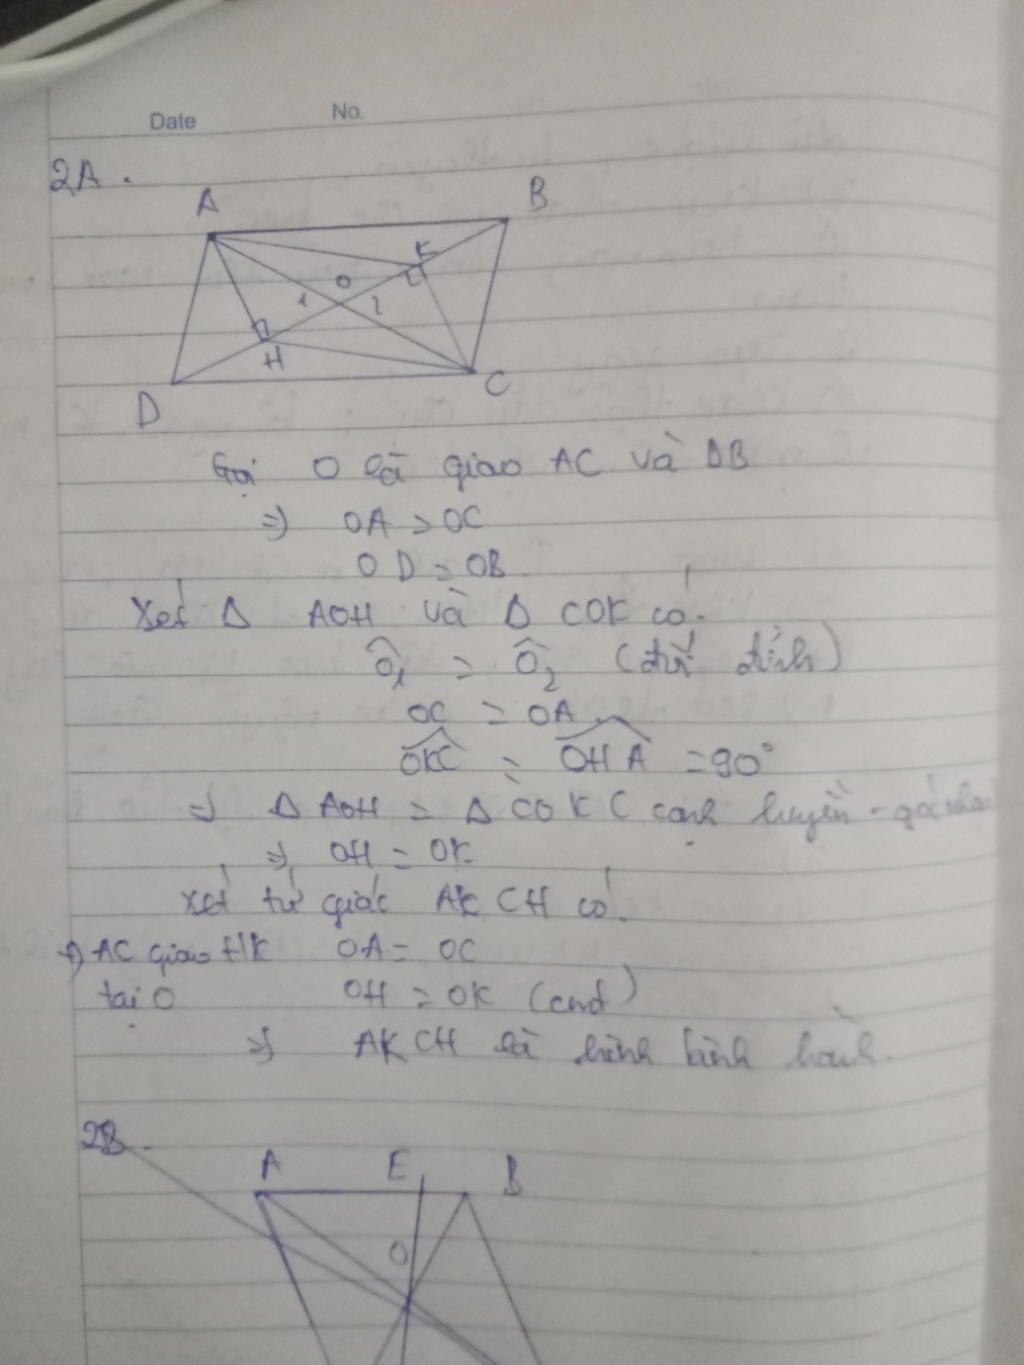 Date No.
2A.
A B
K
O
1 2
H
D C
Gọi O là giao AC và DB
=> OA = OC
OD = OB
Xét Δ AOH và Δ COK có.
Ô1 = Ô2 (đối đỉnh)
OC = OA
OKC = OHA = 90°
=> Δ AOH = Δ COK ( cạnh huyền - góc
=> OH = OK
Xét tứ giác AKCH có.
+) AC giao HK OA = OC
tại O OH = OK (cmt)
=> AKCH là hình bình hành.
2B.
A E B
O